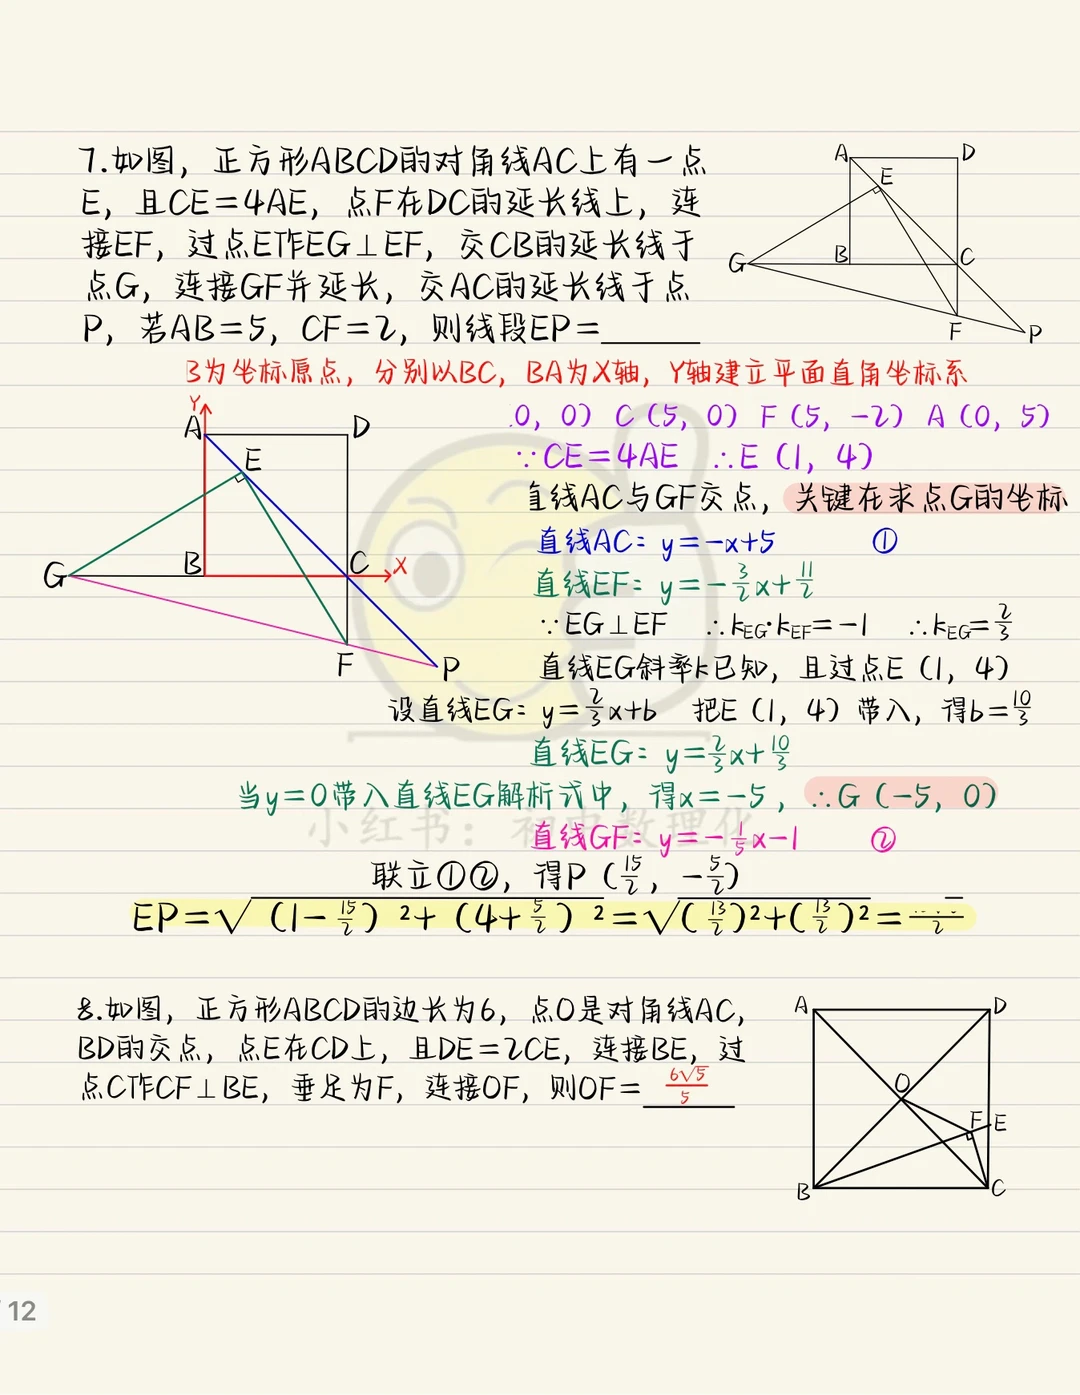 7.如图，正方形ABCD的对角线AC上有一点
E，且CE=4AE，点F在DC的延长线上，连
接EF，过点E作EG⊥EF，交CB的延长线于
点G，连接GF并延长，交AC的延长线于点
P，若AB=5，CF=2，则线段EP=______
A D
E
G B C
F P
B为坐标原点，分别以BC，BA为X轴，Y轴建立平面直角坐标系
Y
A D
E
G B C X
F P
0，0） C（5，0） F（5，-2） A（0，5）
∵CE=4AE ∴E（1，4）
直线AC与GF交点，关键在求点G的坐标
直线AC：y=-x+5 ①
直线EF：y=-3/2x+11/2
∵EG⊥EF ∴kEG·kEF=-1 ∴kEG=2/3
直线EG斜率k已知，且过点E（1，4）
设直线EG：y=2/3x+b 把E（1，4）带入，得b=10/3
直线EG：y=2/3x+10/3
当y=0带入直线EG解析式中，得x=-5，∴G（-5，0）
小红书：初中数理化
直线GF：y=-1/5x-1 ②
联立①②，得P（15/2，-5/2）
EP=√（1-15/2）²+（4+5/2）²=√(13/2)²+(13/2)²=
8.如图，正方形ABCD的边长为6，点O是对角线AC，
BD的交点，点E在CD上，且DE=2CE，连接BE，过
点C作CF⊥BE，垂足为F，连接OF，则OF=6√5/5
A D
O
F E
B C
12